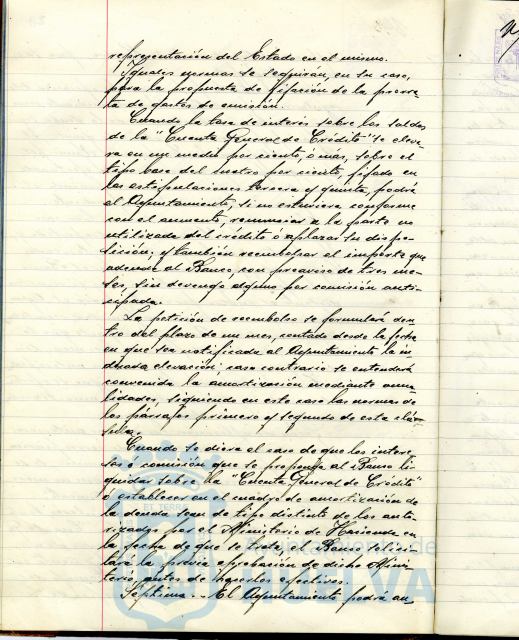 representación del Estado en el mismo.
Iguales normas se seguirán, en su caso,
para la propuesta de fijación de la prorra-
ta de gastos de emisión.
Cuando la tasa de interés sobre los saldos
de la "Cuenta General de Crédito" se eleve
ra en un medio por ciento, ó más, sobre el
tipo base del cuatro por ciento, fijado en
las estipulaciones tercera y quinta, podrá
el Ayuntamiento, si no estuviere conforme
con el aumento, renunciar a la parte no
utilizada del crédito ó aplazar su dispo-
sición; y también reembolsar el importe que
adeude al Banco, con preaviso de tres me-
ses, sin devengo alguno por comisión anti-
cipada.
La petición de reembolso se formulará den-
tro del plazo de un mes, contado desde la fecha
en que sea notificada al Ayuntamiento la in-
dicada elevación; caso contrario se entenderá
convenida la amortización mediante anua-
lidades, siguiendo en este caso las normas de
los párrafos primero y segundo de esta cláu-
sula.
Cuando se diera el caso de que los intere-
ses ó comisión que se proponga el Banco li-
quidar sobre la "Cuenta General de Crédito"
ó establecer en el cuadro de amortización de
la deuda sean de tipo distinto de los auto-
rizados por el Ministerio de Hacienda en
la fecha de que se trate, el Banco solici-
tará la previa aprobación de dicho Minis-
terio, antes de hacerlos efectivos.
Séptima.- El Ayuntamiento podrá an
Ayuntamiento de
HUELVA